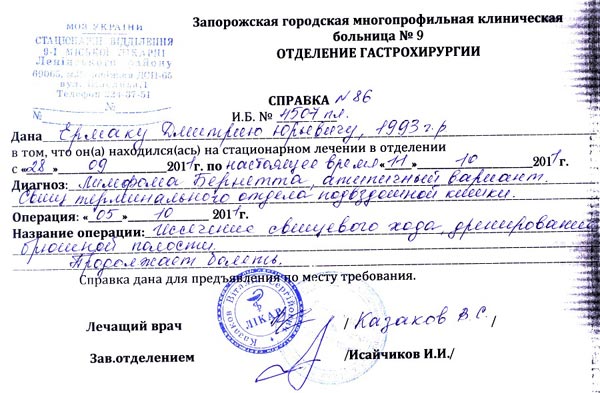 МОЗ УКРАЇНИ
СТАЦІОНАРНІ ВІДДІЛЕННЯ
9-Ї МІСЬКОЇ ЛІКАРНІ
Ленінського району
69065, м. Запоріжжя ДСП-65
Телефон 224-37-51
№
№
Запорожская городская многопрофильная клиническая
больница № 9
ОТДЕЛЕНИЕ ГАСТРОХИРУРГИИ
СПРАВКА № 86
И.Б. № 4507 пл.
Дана Ермаку Дмитрию Юрьевичу, 1993 г.р
в том, что он(а) находился(ась) на стационарном лечении в отделении
с «28» 09 2011г. по настоящее время «11» 10 2011г.
Диагноз: Лимфома Беркетта, атипичный вариант.
Свищ терминального отдела подвздошной кишки.
Операция: «05» 10 2011г.
Название операции: Иссечение свищевого хода, дренирование
брюшной полости.
Продолжает болеть.
Справка дана для предъявления по месту требования.
Казаков Віталій Сергійович
ЛІКАР
Лечащий врач / Казаков В.С. /
Зав.отделением /Исайчиков И.И./